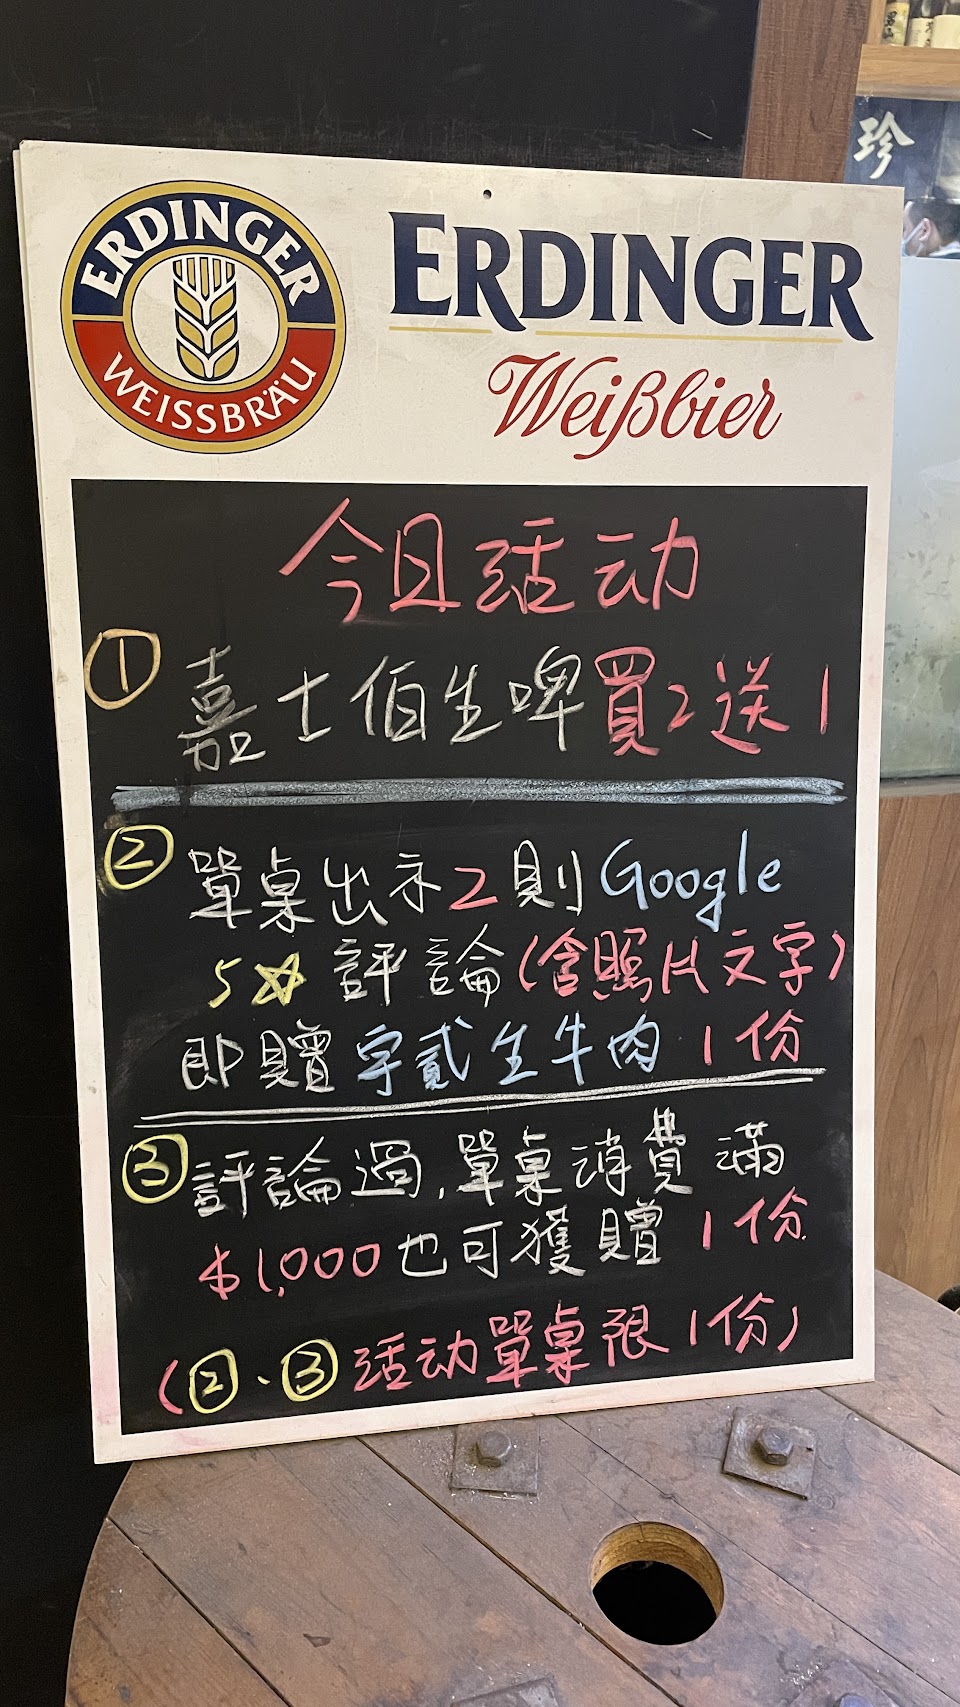 ERDINGER
WEISSBRÄU
ERDINGER
Weißbier
珍
今日活动
① 嘉士伯生啤買2送1
② 單桌出示2則 Google
5☆ 評論(含照片文字)
即贈 宇貳生牛肉 1份
③ 評論過,單桌消費滿
$1,000也可獲贈 1份
(②、③活动單桌限1份)